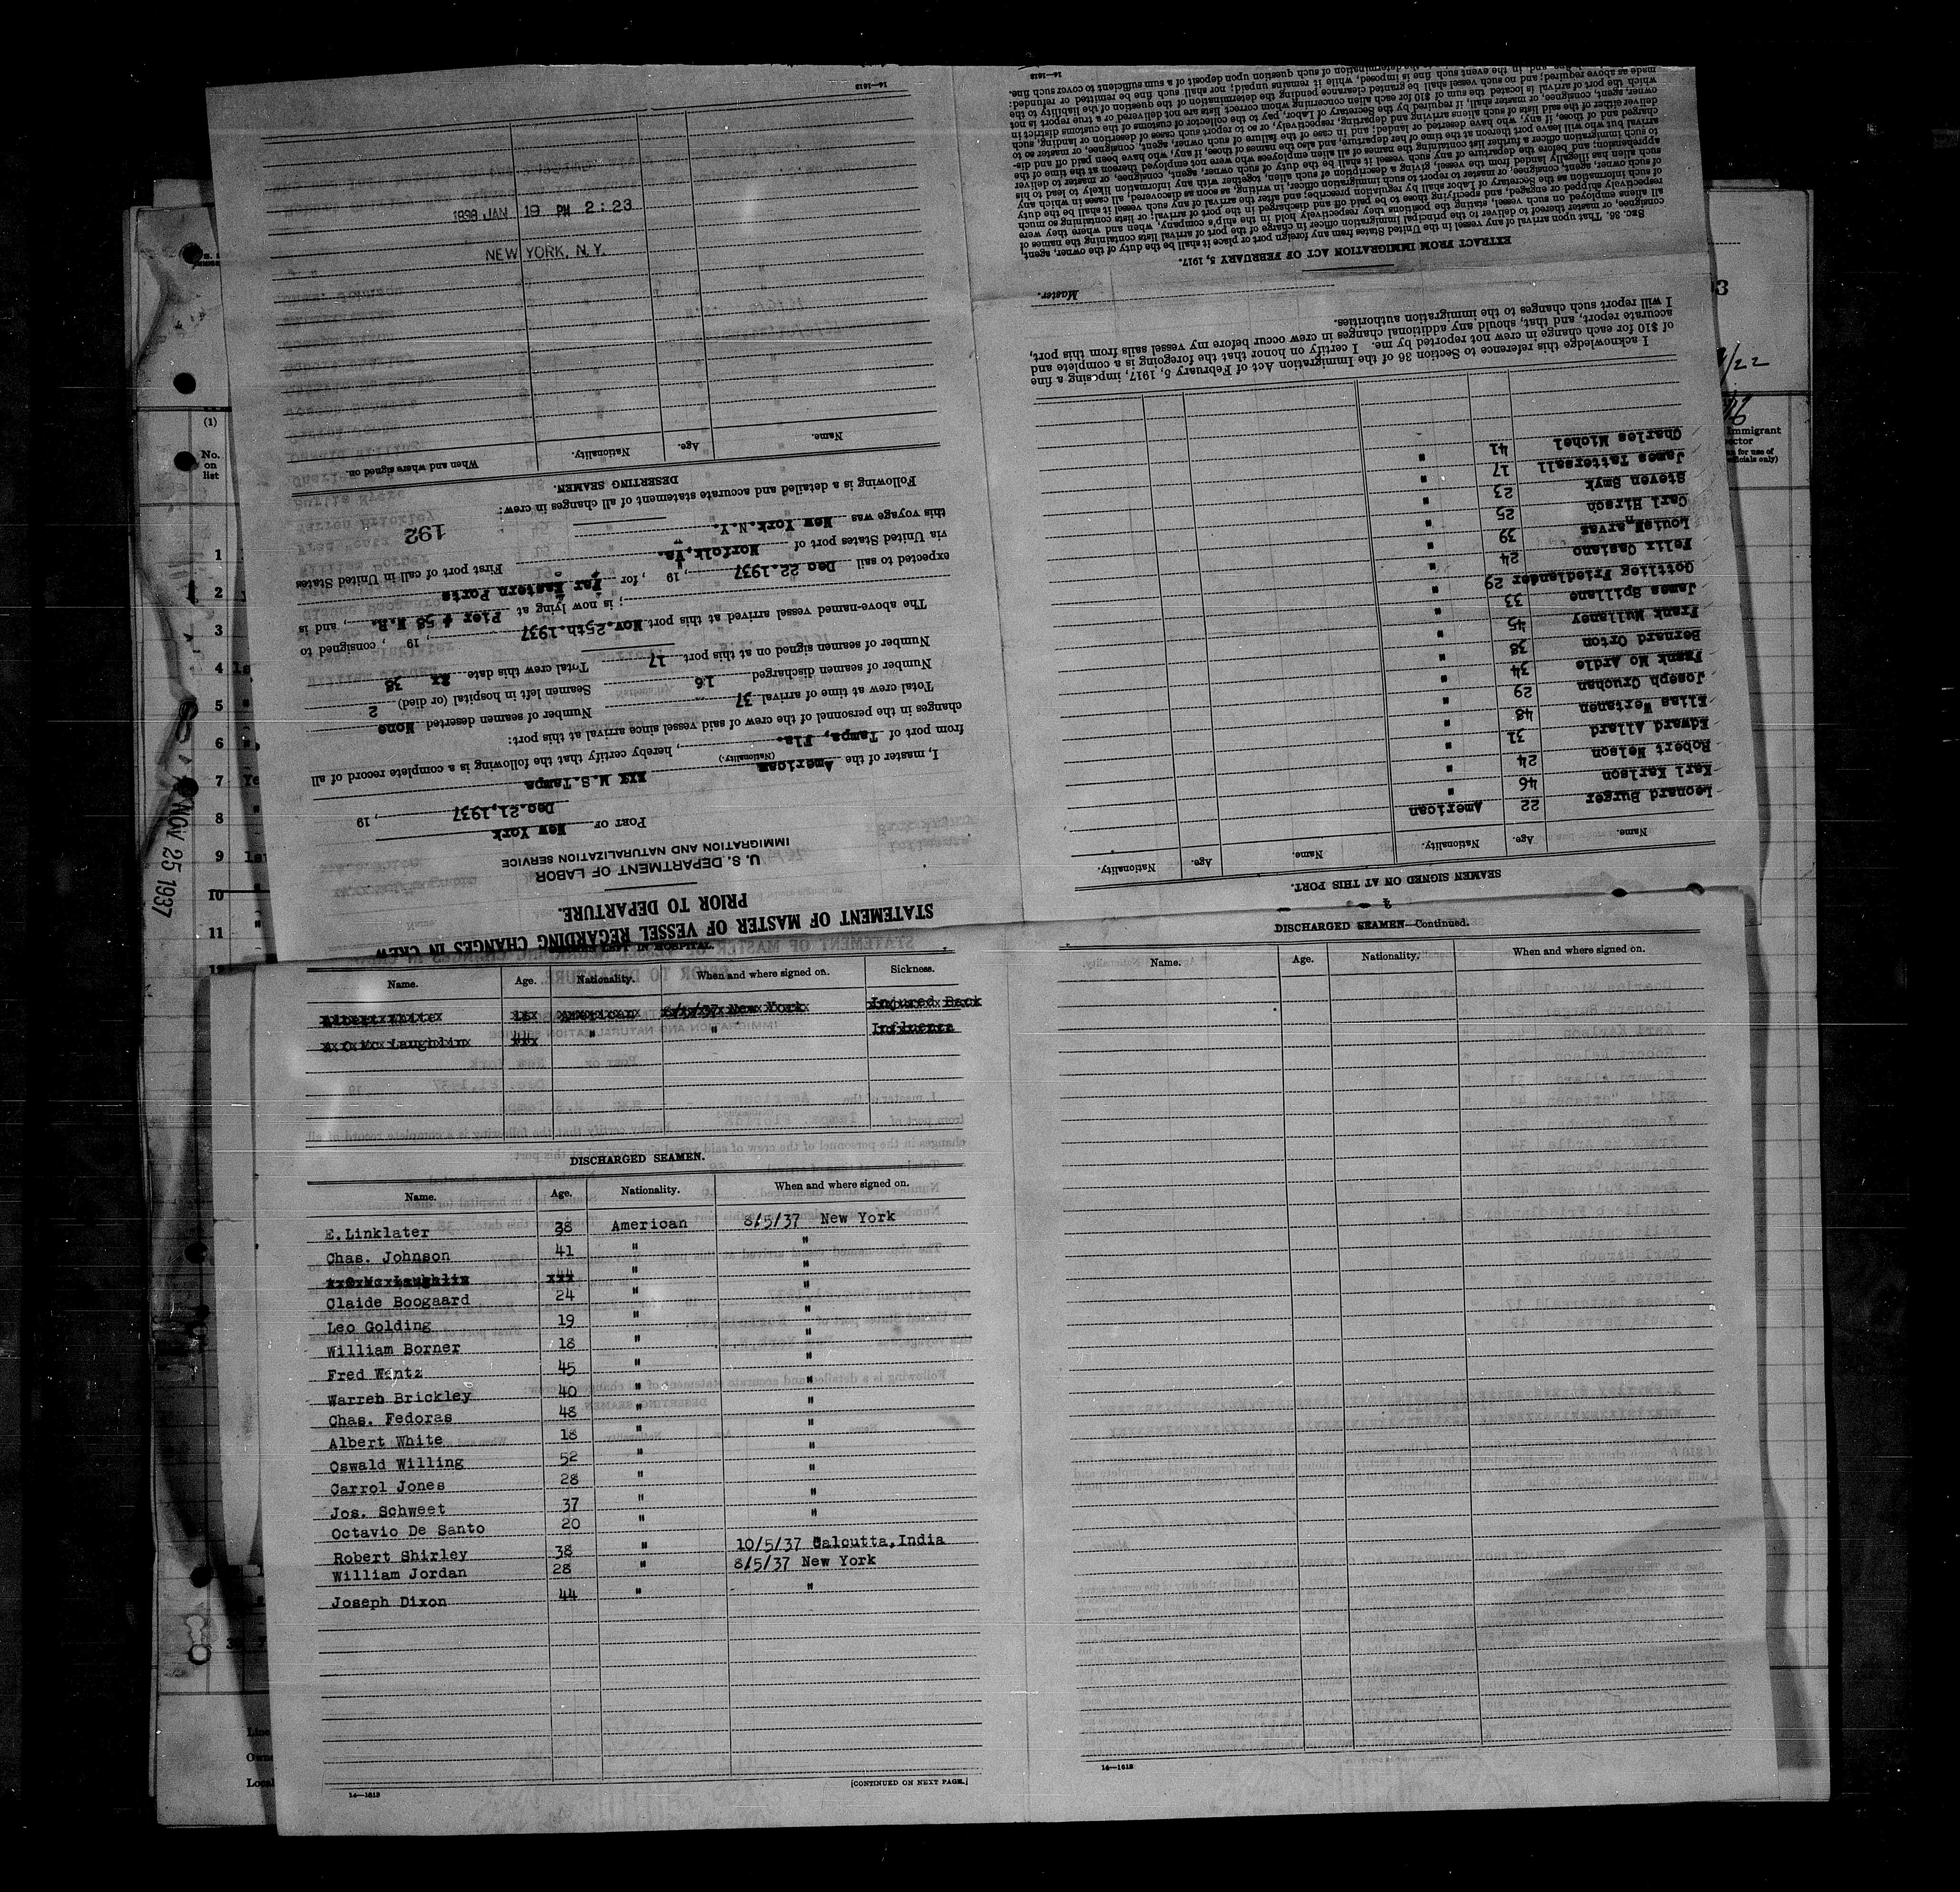 STATEMENT OF MASTER OF VESSEL REGARDING CHANGES IN CREW
PRIOR TO DEPARTURE.
U. S. DEPARTMENT OF LABOR
IMMIGRATION AND NATURALIZATION SERVICE
PORT OF New York
Dec.21,1937, 19
I, master of the American xxx M.S.Tampa
(Nationality.)
from port of Tampa, Fla., hereby certify that the following is a complete record of all
changes in the personnel of the crew of said vessel since arrival at this port:
Total crew at time of arrival 37 Number of seamen deserted None
Number of seamen discharged 16 Seamen left in hospital (or died) 2
Number of seamen signed on at this port 17 Total crew this date 38
The above-named vessel arrived at this port Nov.25th.1937, 19 , consigned to
; is now lying at Pier # 58 N.R., and is
expected to sail Dec 22.1937, 19 , for Far Eastern Ports
via United States port of Norfolk,Va. First port of call in United States
this voyage was New York.N.Y.
192
Following is a detailed and accurate statement of all changes in crew:
DESERTING SEAMEN.
Name. Age. Nationality. When and where signed on.
NEW YORK, N.Y.
1938 JAN 19 PM 2:23
14—1613
SEAMEN SIGNED ON AT THIS PORT.
Name. Age. Nationality. Name. Age. Nationality.
Leonard Burger 22 American
Karl Karlson 46 "
Robert Nelson 24 "
Edward Allard 31 "
Elias Wertanen 48 "
Joseph Cruchan 29 "
Frank Mc Ardle 34 "
Bernard Orton 38 "
Frank Mullaney 45 "
James Spillane 33 "
Gottlieg Friedlander 29 "
Felix Casiano 24 "
Louis Narvas 39 "
Carl Hirson 25 "
Steven Smyk 23 "
James Tattersall 17 "
Charles Michel 41 "
I acknowledge this reference to Section 36 of the Immigration Act of February 5, 1917, imposing a fine
of $10 for each change in crew not reported by me. I certify on honor that the foregoing is a complete and
accurate report, and that, should any additional changes in crew occur before my vessel sails from this port,
I will report such changes to the immigration authorities.
Master.
EXTRACT FROM IMMIGRATION ACT OF FEBRUARY 5, 1917.
SEC. 36. That upon arrival of any vessel in the United States from any foreign port or place it shall be the duty of the owner, agent,
consignee, or master thereof to deliver to the principal immigration officer in charge of the port of arrival lists containing the names of
all aliens employed on such vessel, stating the positions they respectively hold in the ship's company, when and where they were
respectively shipped or engaged, and specifying those to be paid off and discharged in the port of arrival; or lists containing so much
of such information as the Secretary of Labor shall by regulation prescribe; and after the arrival of any such vessel it shall be the duty
of such owner, agent, consignee, or master to report to such immigration officer, in writing, as soon as discovered, all cases in which any
such alien has illegally landed from the vessel, giving a description of such alien, together with any information likely to lead to his
apprehension; and before the departure of any such vessel it shall be the duty of such owner, agent, consignee, or master to deliver
to such immigration officer a further list containing the names of all alien employees who were not employed thereon at the time of the
arrival but who will leave port thereon at the time of her departure, and also the names of those, if any, who have been paid off and dis-
charged and of those, if any, who have deserted or landed; and in case of the failure of such owner, agent, consignee, or master so to
deliver either of the said lists of such aliens arriving and departing, respectively, or so to report such cases of desertion or landing, such
owner, agent, consignee, or master shall, if required by the Secretary of Labor, pay to the collector of customs of the customs district in
which the port of arrival is located the sum of $10 for each alien concerning whom correct lists are not delivered or a true report is not
made as above required; and no such vessel shall be granted clearance pending the determination of the question of the liability to the
14—1613
Name. Age. Nationality. When and where signed on. Sickness.
Albert White 18 American New York Injured Back
Mc Laughlin 44 " " Influenza
DISCHARGED SEAMEN.
Name. Age. Nationality. When and where signed on.
E.Linklater 38 American 8/5/37 New York
Chas. Johnson 41 " "
Mc Laughlin 44 " "
Claide Boogaard 24 " "
Leo Golding 19 " "
William Borner 18 " "
Fred Wentz 45 " "
Warren Brickley 40 " "
Chas. Fedoras 48 " "
Albert White 18 " "
Oswald Willing 52 " "
Carrol Jones 28 " "
Jos. Schweet 37 " "
Octavio De Santo 20 " "
Robert Shirley 38 " 10/5/37 Calcutta,India
William Jordan 28 " 8/5/37 New York
Joseph Dixon 44 " "
14—1613
[CONTINUED ON NEXT PAGE.]
DISCHARGED SEAMEN—Continued.
Name. Age. Nationality. When and where signed on.
14—1613
(1)
No.
on
list
1
2
3
4
5
6
7
8
9
10
11
12
NOV 25 1937